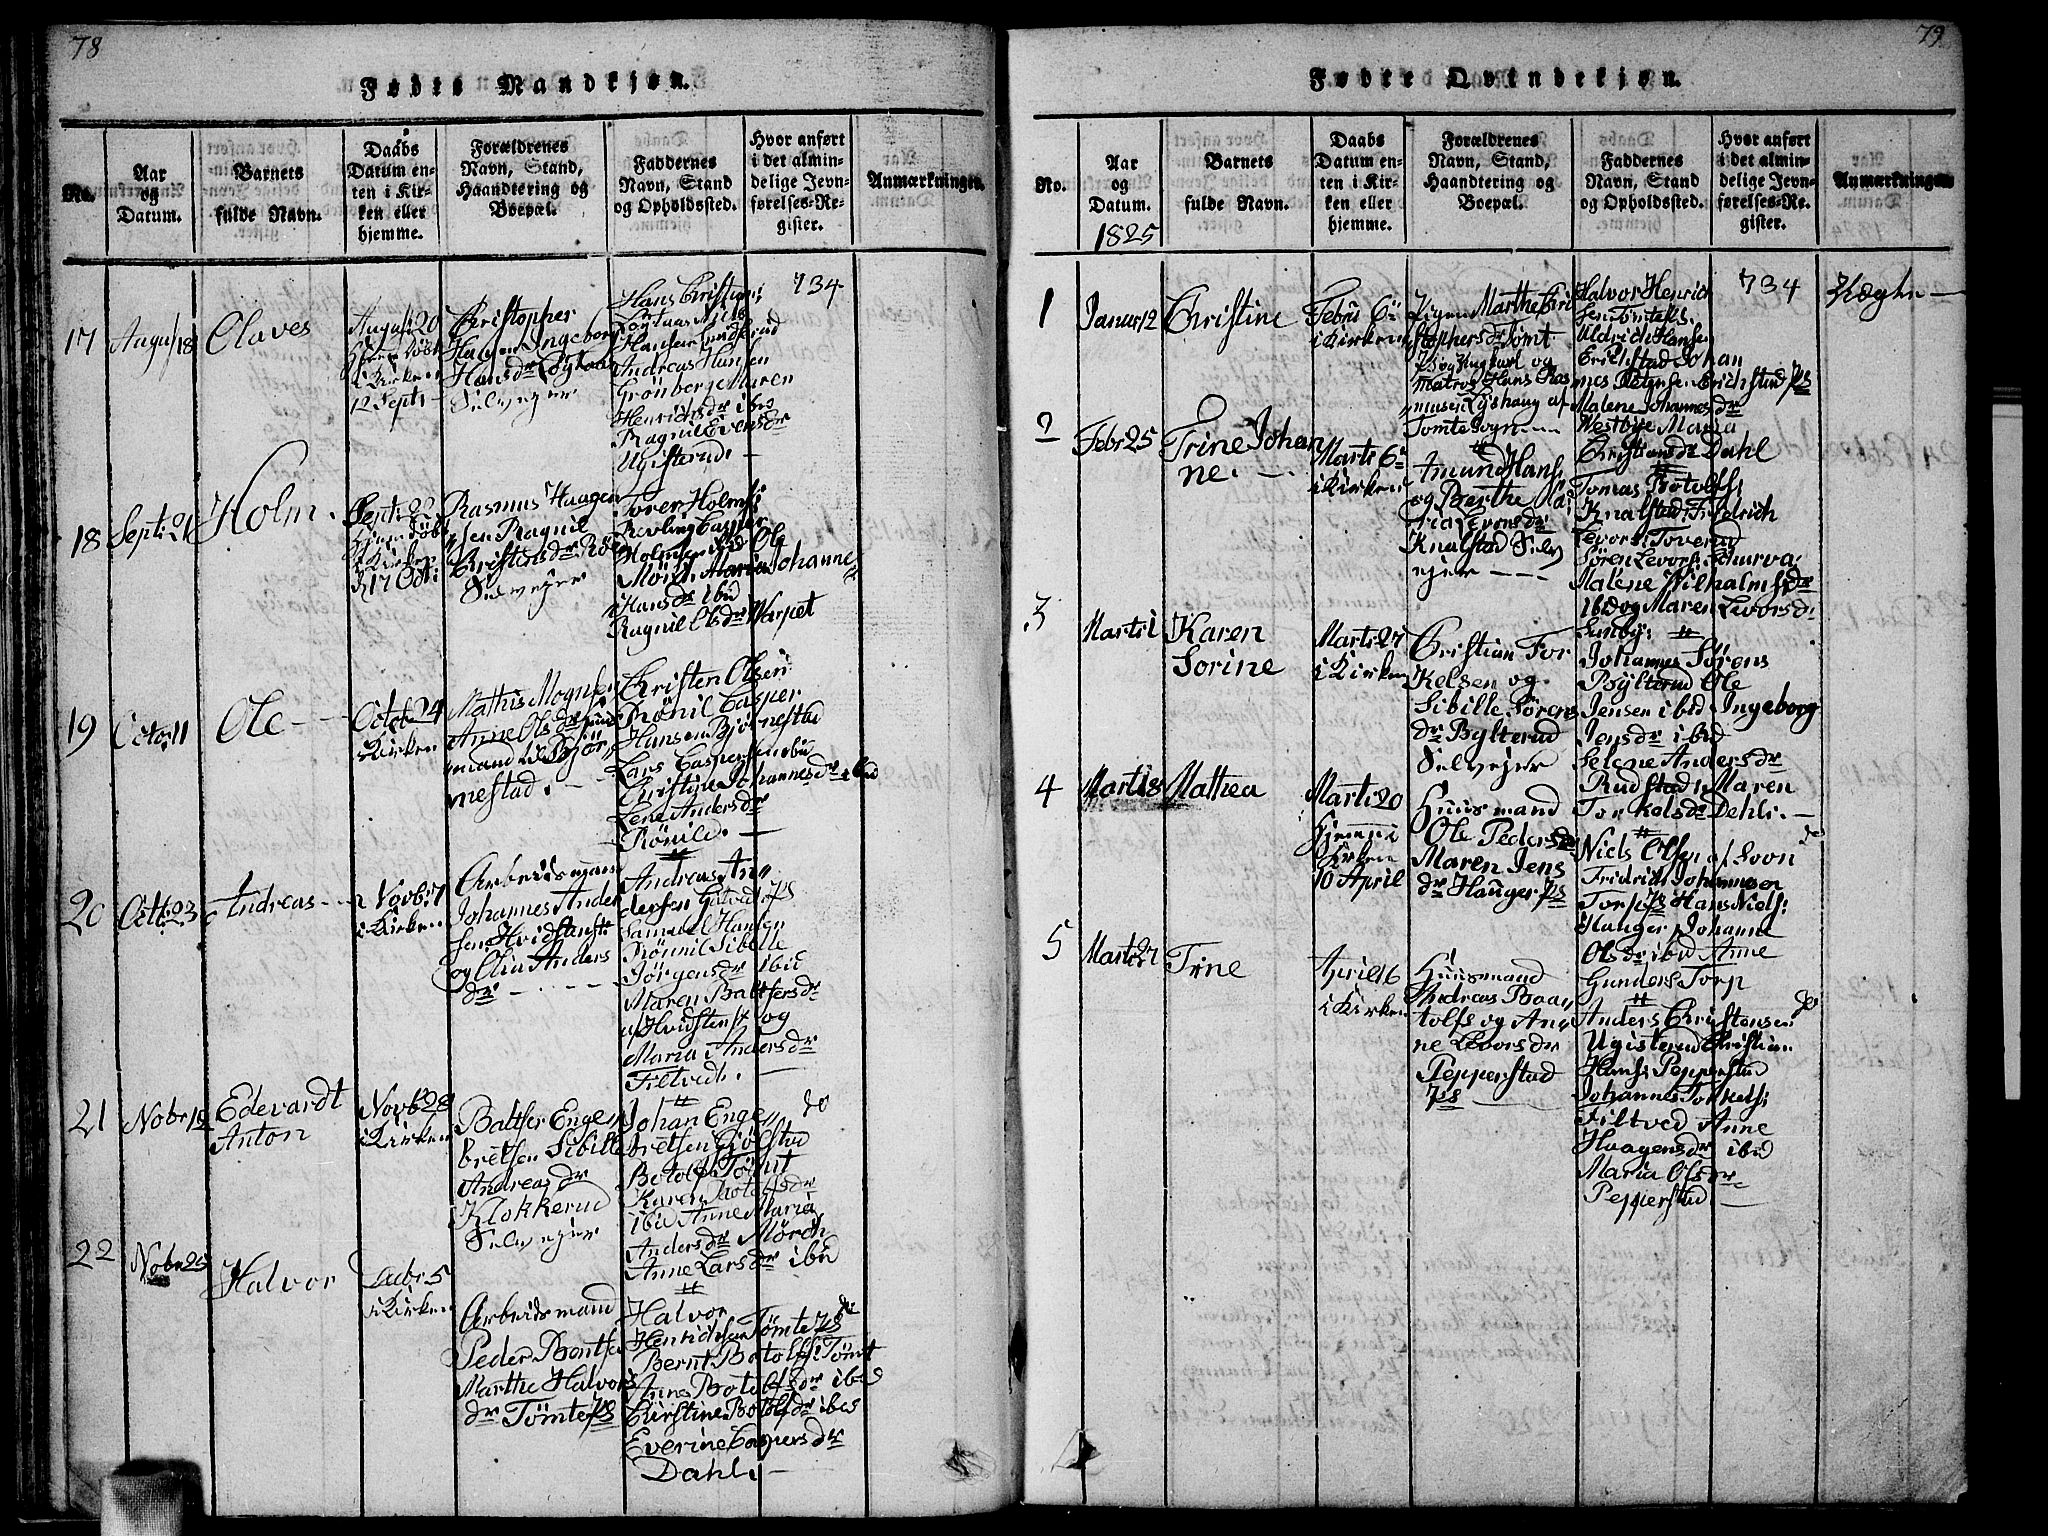 78
Fødte Mandkjøn.
No.
Aar
og
Datum.
Barnets
fulde Navn.
Daabs
Datum en-
ten i Kir-
ken eller
hjemme.
Forældrenes
Navn, Stand,
Haandtering og
Boepæl.
Faddernes
Navn, Stand
og Opholdssted.
Hvor anført
i det almin-
delige Jevn-
førelses-Re-
gister.
Anmærkninger.
17
August 18
Olaves
August 20
Hjemdøbt
i Kirken
12 Septr
Christopher
Halvorsen Ingeborg
Hansdr
Selvejer
Hans Christians:
Niels
Hansen
Andreas Hansen
Grönberg Maren
Henrichsdr ibid
Ragnil Evensdr
Ugisterud. -
734
18
Septr 21
Holm.
Septr 22
Hjemdöbt
i Kirken
d 17 Octr
Rasmus Haagen
sen Ragnil
Christensdr Röd
Selvejer
Torer Holmsen
Revling Casper
Holmsen ibid Ole
Mörch Maria Johanne
Hansdr ibid
Ragnil Olsdr Warpet
19
Octor 11
Ole - -
Octob 24
i Kirken
Mathis Mognsen
Anne Olsdr Huus
mand Björ
nestad. -
Christen Olsen
Rönil Casper
Hansen Björnestad
Lars Caspersen ibid
Christine Johannesdr ibid
Lene Andersdr
Rönild. -
20
Octb: 23
Andreas - -
Novbr 7
i Kirken
Arbeidsmann
Johannes Ander
sen Hvidsteen
og Olia Anders
dr - - -
Andreas An
dersen
Samuel Hansen
Rönnil Sibille
Jörgensdr ibid
Maren Baltsersdr
af Hvidsten og
Maria Andersdr
Filtvedt. -
21
Nobr 12
Edevardt
Anton
Novb 28
i Kirken
Baltser Enge
bretsen Sibille
Andreasdr
Klokkerud
Selvejer
Johan Enge
bretsen Gjölstad
Botolf Tömt
Karen Botolfsdr
ibid Anne Maria
Andersdr Mörch
Anne Larsdr ibid
do
22
Nobr 25
Halvor
Decbr 5
i Kirken
Arbeidsmand
Peder Berntsen
Marthe Halvors
dr Tömte ps
Halvor
Henrichsen Tömte ps
Bernt Botolfs: Tömt
Anne Botolfsdr ibid
Kirstine Botolfsdr ibid
Everine Caspersdr
Dahl: -
do
79
Fødte Qvindekjøn.
No.
Aar
og
Datum.
1825
Barnets
fulde Navn.
Daabs
Datum en-
ten i Kir-
ken eller
hjemme.
Forældrenes
Navn, Stand,
Haandtering og
Boepæl.
Faddernes
Navn, Stand
og Opholdssted.
Hvor anført
i det almin-
delige Jevn-
førelses-Re-
gister.
Anmærkninger.
1
Januar 12
Christine
Febru 6
i Kirken
Pigen Marthe Cri
stophersdr Tömt
og Ungkarl og
Matros Hans Ras
musen Lyshaug af
Tomte Sogn - -
Halvor Henrich
sen Tömte ps.
Uldrich Hansen
Erichstad Johan
nes Erichstad ps
Malene Johannesdr
Westbye Maria
Christiansdr Dahl
734
Uægte -
2
Febr 25
Trine Johan
ne. - -
Marts 6
i Kirken
Amund Hans:
og Berthe Ma
ria Evensdr
Knalstad Selv
ejer - - -
Tomas Botolfs:
Knalstad Fridrich
Levors: Toverud
Sören Levors:
Malene Wilhalmsdr
ibid og Maren Levorsdr
Sundbÿ:
3
Marts 1
Karen
Sorine
Marts 27
i Kirken
Cristian Tor
kelsen og
Sibille Sörens
dr Bylterud
Selvejer
Johannes Sörens
Bylterud Ole
Jensen ibid Ingeborg
Jensdr ibid
Selene Andersdr
Rudstad Maren
Torkelsdr Dehli. -
4
Marts 18
Mathea
Marts 20
Hjemme
i Kirken
10 April
Huusmand
Ole Pedersen
Maren Jens
dr Hauger ps
Niels Olsen af Soon
Fridrich Johannsen
Torp ps Hans Niels:
Hauger Johanne
Olsdr ibid Anne
Gunders Torp
do
5
Marts 27
Trine
April 16
i Kirken
Huusmand
Andreas Baa
tolfs og An
ne Levorsdr
Pepperstad
ps
Anders Christensen
Ugisterud Christian
Hans: Pepperstad
Johannes Torkels:
Filtved Anne
Haagensdr ibid
Maria Olsdr
Pepperstad -
do